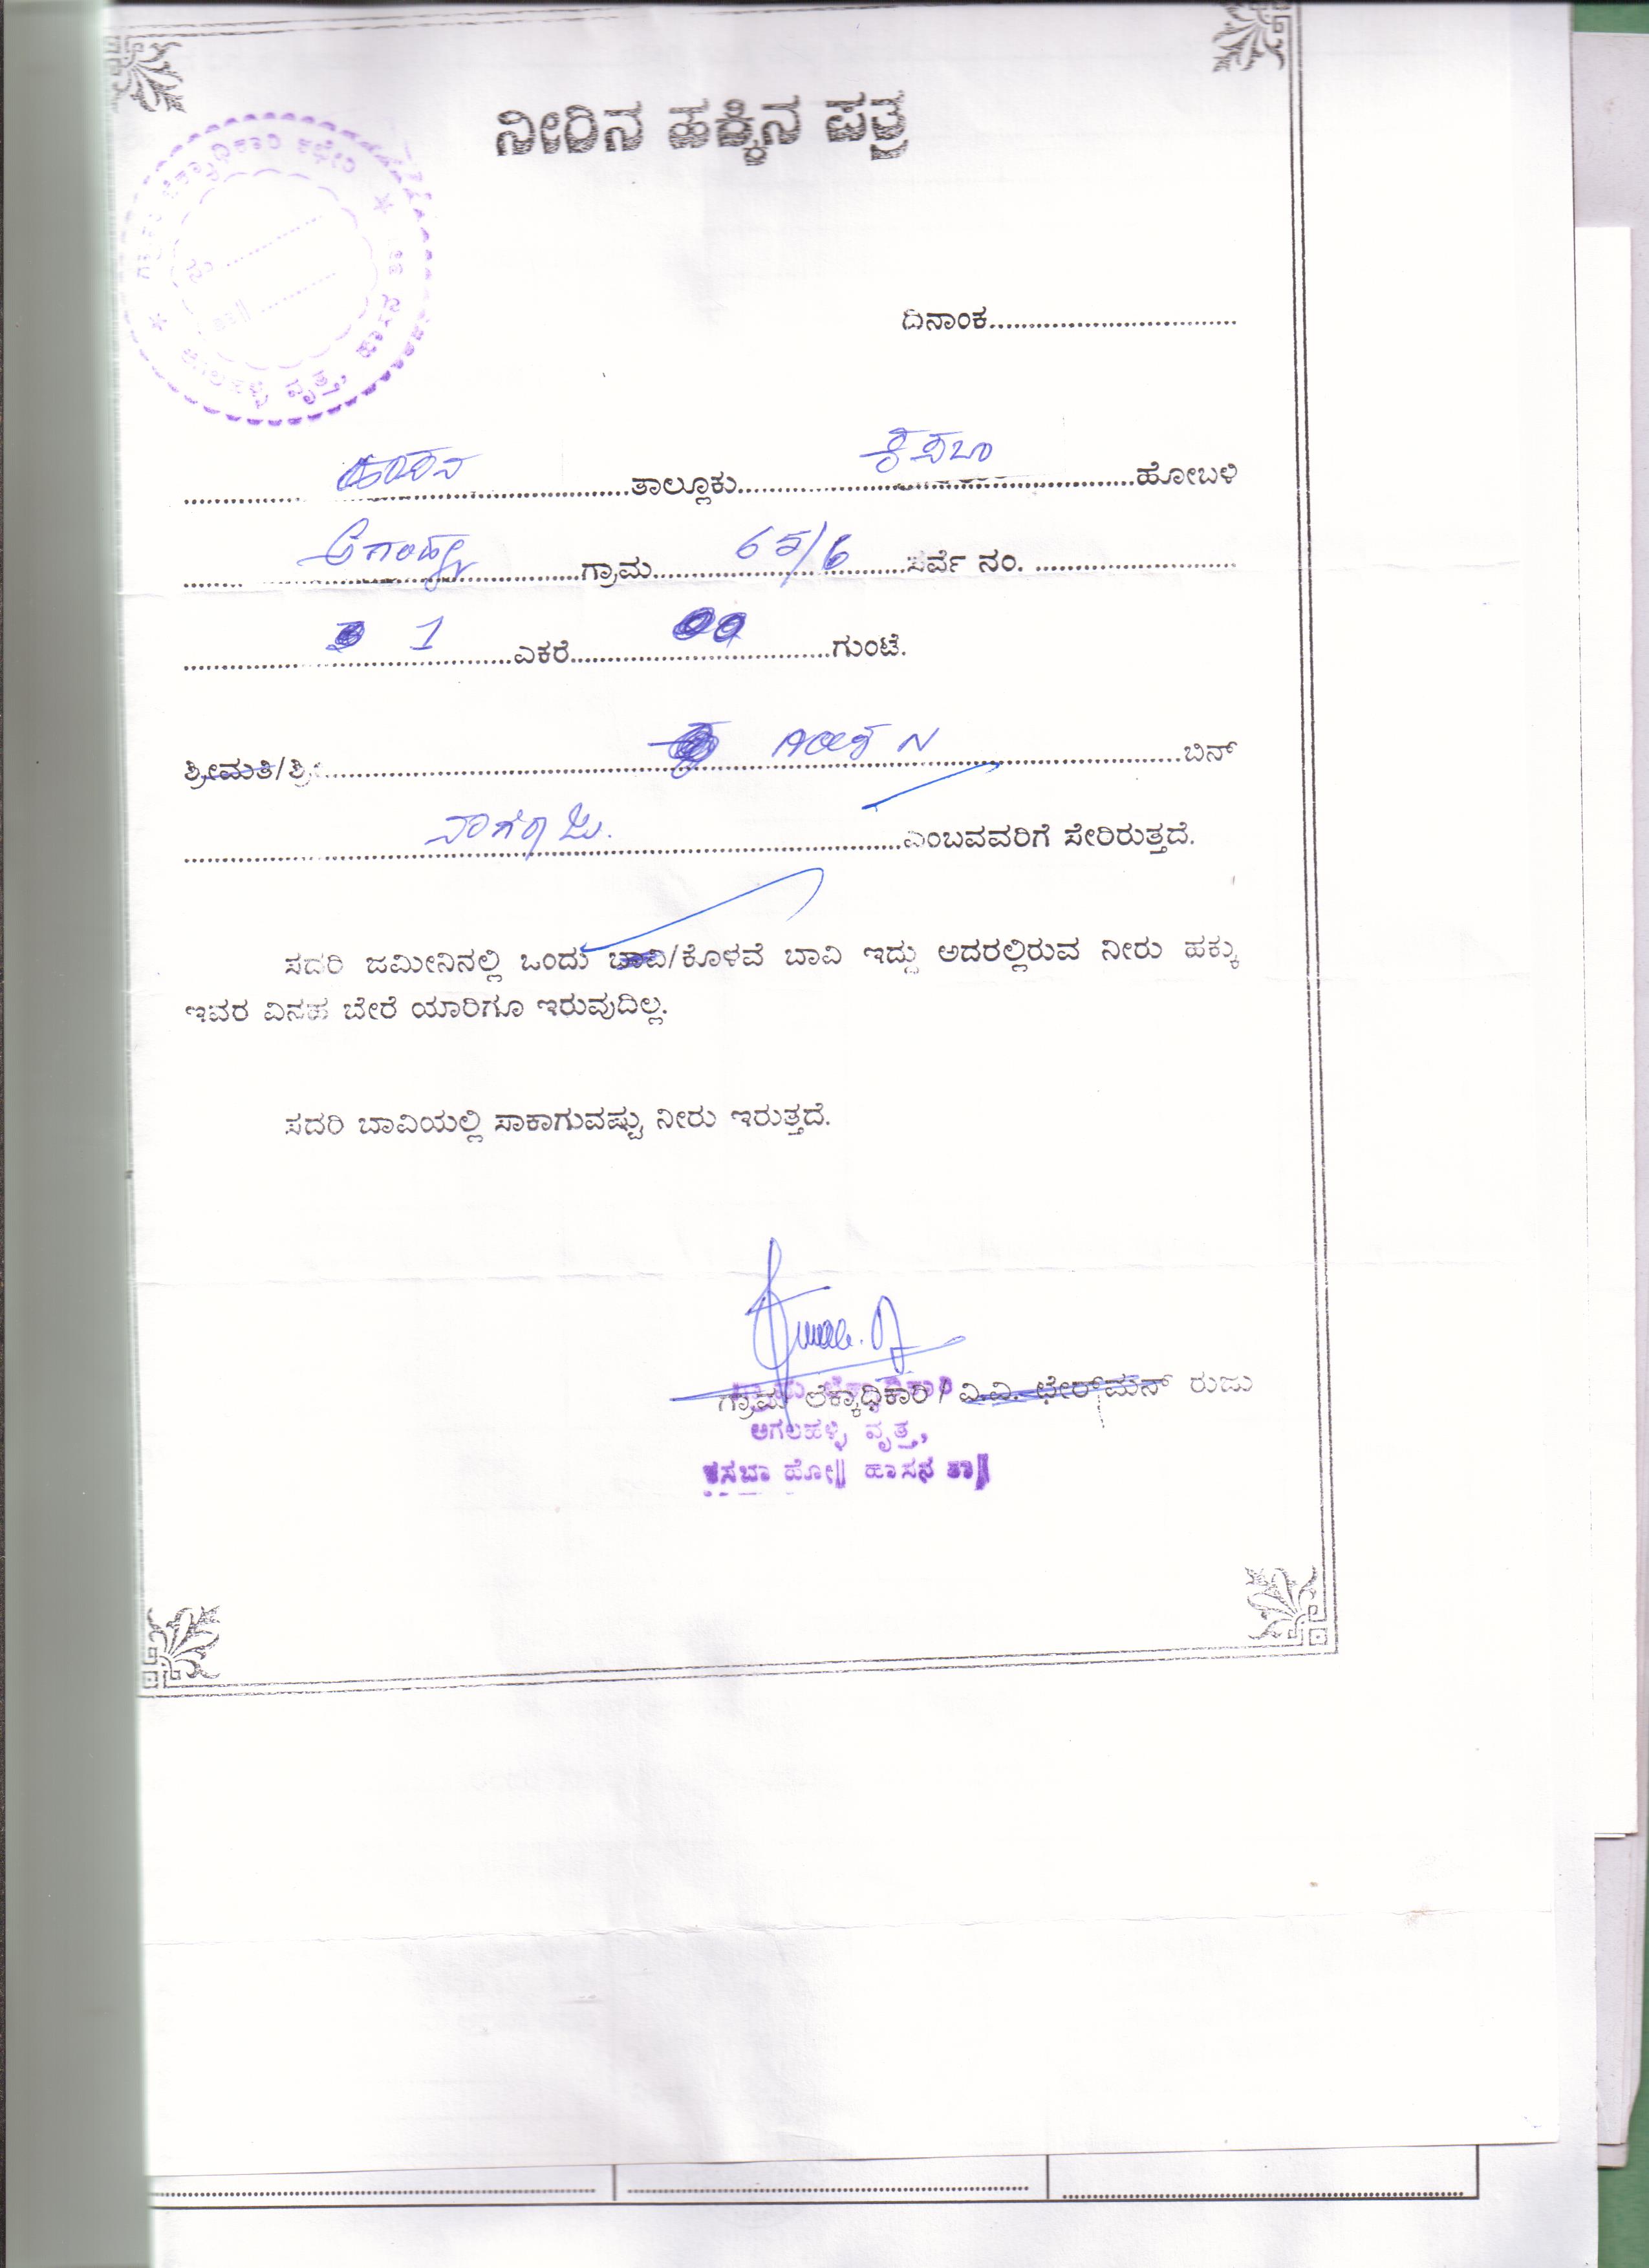 ನೀರಿನ ಹಕ್ಕಿನ ಪತ್ರ
ದಿನಾಂಕ..............................
ಹಾಸನ ತಾಲ್ಲೂಕು ಕಸಬಾ ಹೋಬಳಿ
ಗ್ರಾಮ 65/6 ಸರ್ವೆ ನಂ. .........................
1 ಎಕರೆ 00 ಗುಂಟೆ.
ಶ್ರೀಮತಿ/ಶ್ರೀ N ಬಿನ್
ನಾಗರಾಜು. ಎಂಬವವರಿಗೆ ಸೇರಿರುತ್ತದೆ.
ಸದರಿ ಜಮೀನಿನಲ್ಲಿ ಒಂದು ಬಾವಿ/ಕೊಳವೆ ಬಾವಿ ಇದ್ದು ಅದರಲ್ಲಿರುವ ನೀರು ಹಕ್ಕು
ಇವರ ವಿನಹ ಬೇರೆ ಯಾರಿಗೂ ಇರುವುದಿಲ್ಲ.
ಸದರಿ ಬಾವಿಯಲ್ಲಿ ಸಾಕಾಗುವಷ್ಟು ನೀರು ಇರುತ್ತದೆ.
ಗ್ರಾಮ ಲೆಕ್ಕಾಧಿಕಾರಿ / ವಿ.ಪಿ. ಛೇರ್‌ಮನ್ ರುಜು
ಅಗಲಹಳ್ಳಿ ವೃತ್ತ,
ಕಸಬಾ ಹೋ|| ಹಾಸನ ತಾ||